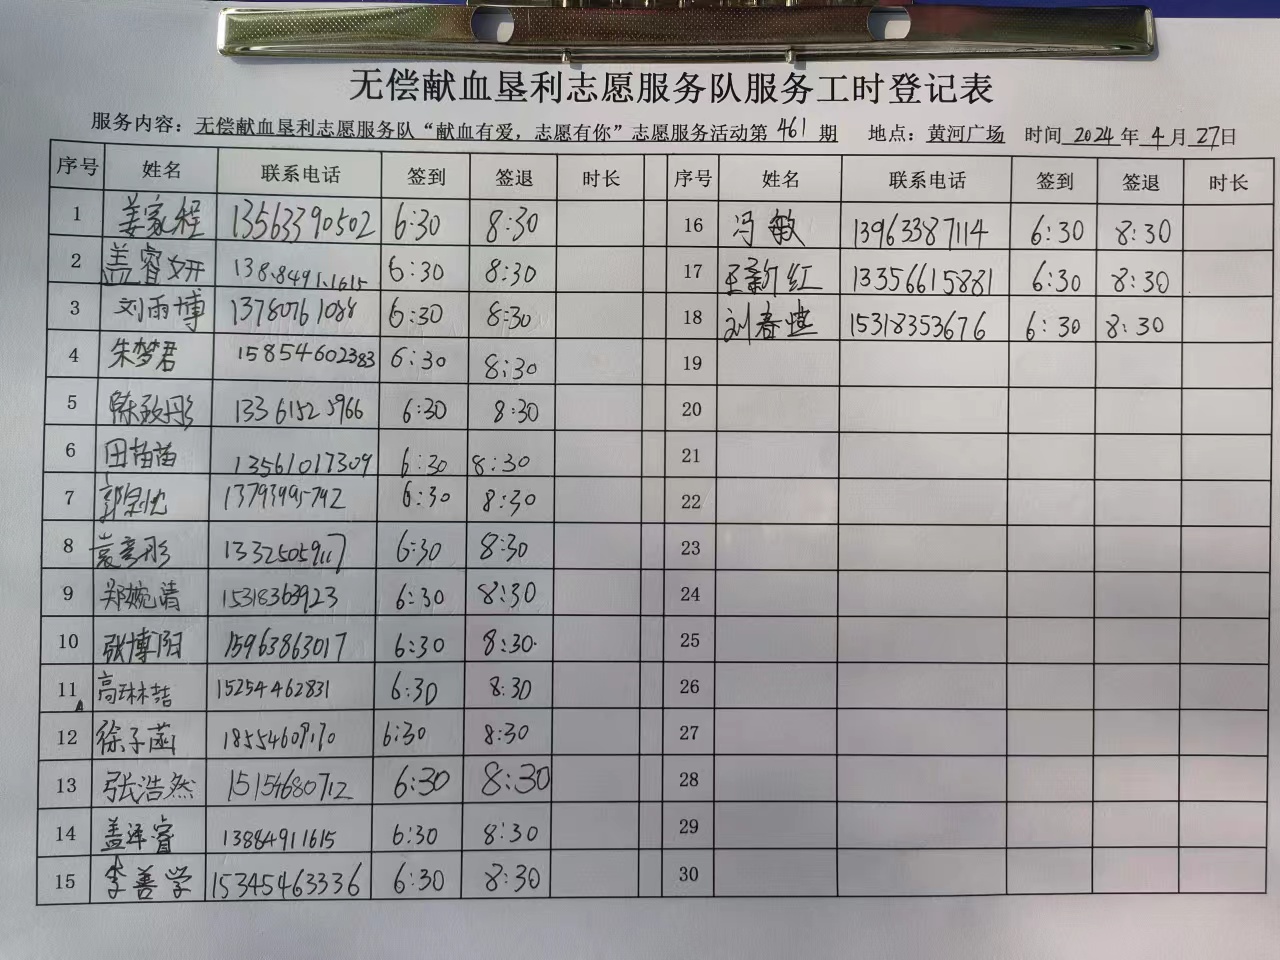 无偿献血垦利志愿服务队服务工时登记表
服务内容：无偿献血垦利志愿服务队“献血有爱，志愿有你”志愿服务活动第 461 期 地点：黄河广场 时间 2024 年 4 月 27 日
序号 姓名 联系电话 签到 签退 时长 序号 姓名 联系电话 签到 签退 时长
1 姜家程 13563390502 6:30 8:30 16 冯敏 13963387114 6:30 8:30
2 盖睿妍 6:30 8:30 17 王新红 13356615881 6:30 8:30
3 刘雨博 13780761088 6:30 8:30 18 刘春 15318353676 6:30 8:30
4 朱梦君 15854602383 6:30 8:30 19
5 陈致彤 13361525966 6:30 8:30 20
6 田苗苗 13561017309 6:30 8:30 21
7 13793995792 6:30 8:30 22
8 袁彦彤 13325059117 6:30 8:30 23
9 郑婉清 15318363923 6:30 8:30 24
10 张博阳 15963863017 6:30 8:30 25
11 高琳喆 15254462831 6:30 8:30 26
12 徐子菡 6:30 8:30 27
13 张浩然 15154680712 6:30 8:30 28
14 盖泽睿 13884911615 6:30 8:30 29
15 李善学 15345463336 6:30 8:30 30